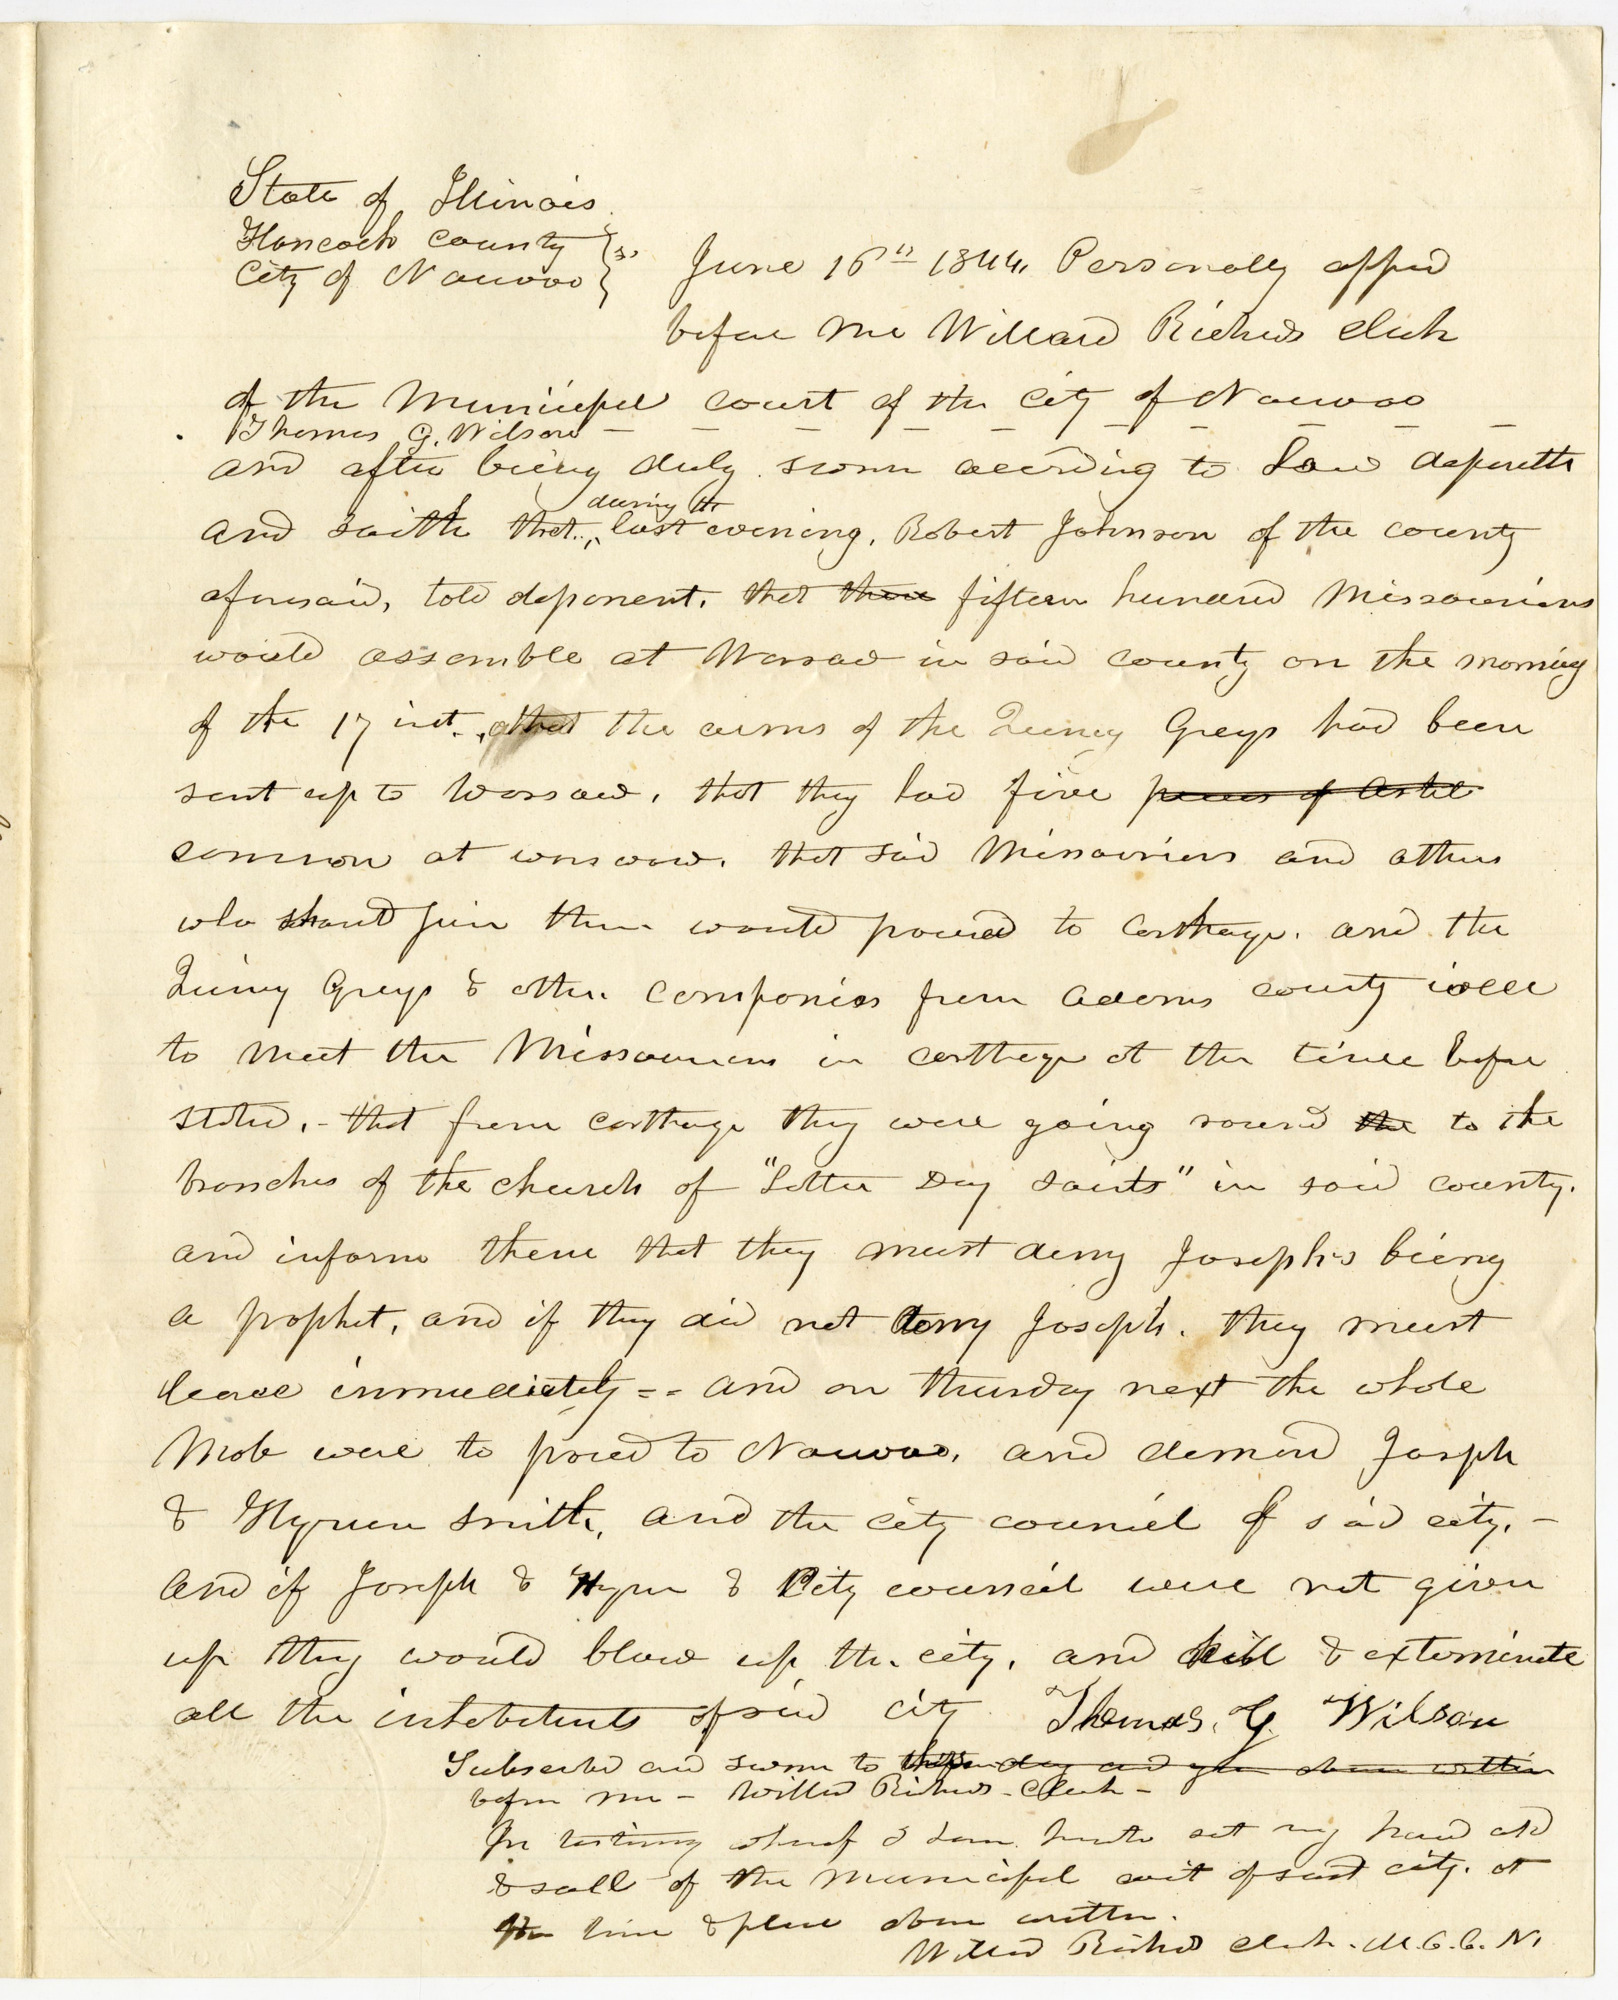 State of Illinois
Hancock county } ss.
City of Nauvoo }
June 16th 1844. Personally appd
before me Willard Richds clerk
of the Municipal court of the city of Nauvoo
Thomas G. Wilson — — — — — — — — —
and after being duly sworn according to Law deposeth
during the
and saith that ^ last evening, Robert Johnson of the county
aforesaid, told deponent. that there fifteen hundred Missourians
would assemble at Warsaw in said county on the morning
of the 17 inst., that the arms of the Quincy Greys had been
sent up to Warsaw, that they had five pieces of Artil
cannon at warsaw. that said Missourians and others
who should join them would proceed to Carthage. and the
Quincy Greys & other companies from Adams county
to meet the Missourians in carthage at the time before
stated, - that from carthage they were going round the to the
branches of the church of "Latter Day saints" in said county.
and inform them that they must deny Joseph's being
a prophet, and if they did not deny Joseph. they must
leave immediately == and on thursday next the whole
Mob were to proceed to Nauvoo, and demand Joseph
& Hyrum Smith, and the city council of said city, -
And if Joseph & Hyrum & City council were not given
up they would blow up the city, and kill & exterminate
all the inhabitants of said city Thomas. G. Wilson
Subscribed and sworn to this day and year above written
before me - Willard Richards - Clerk -
In testimony whereof I have hereunto set my hand and
& seal of the Municipal court of said city. at
the time & place above written.
Willard Richards clerk. M. C. C. N.